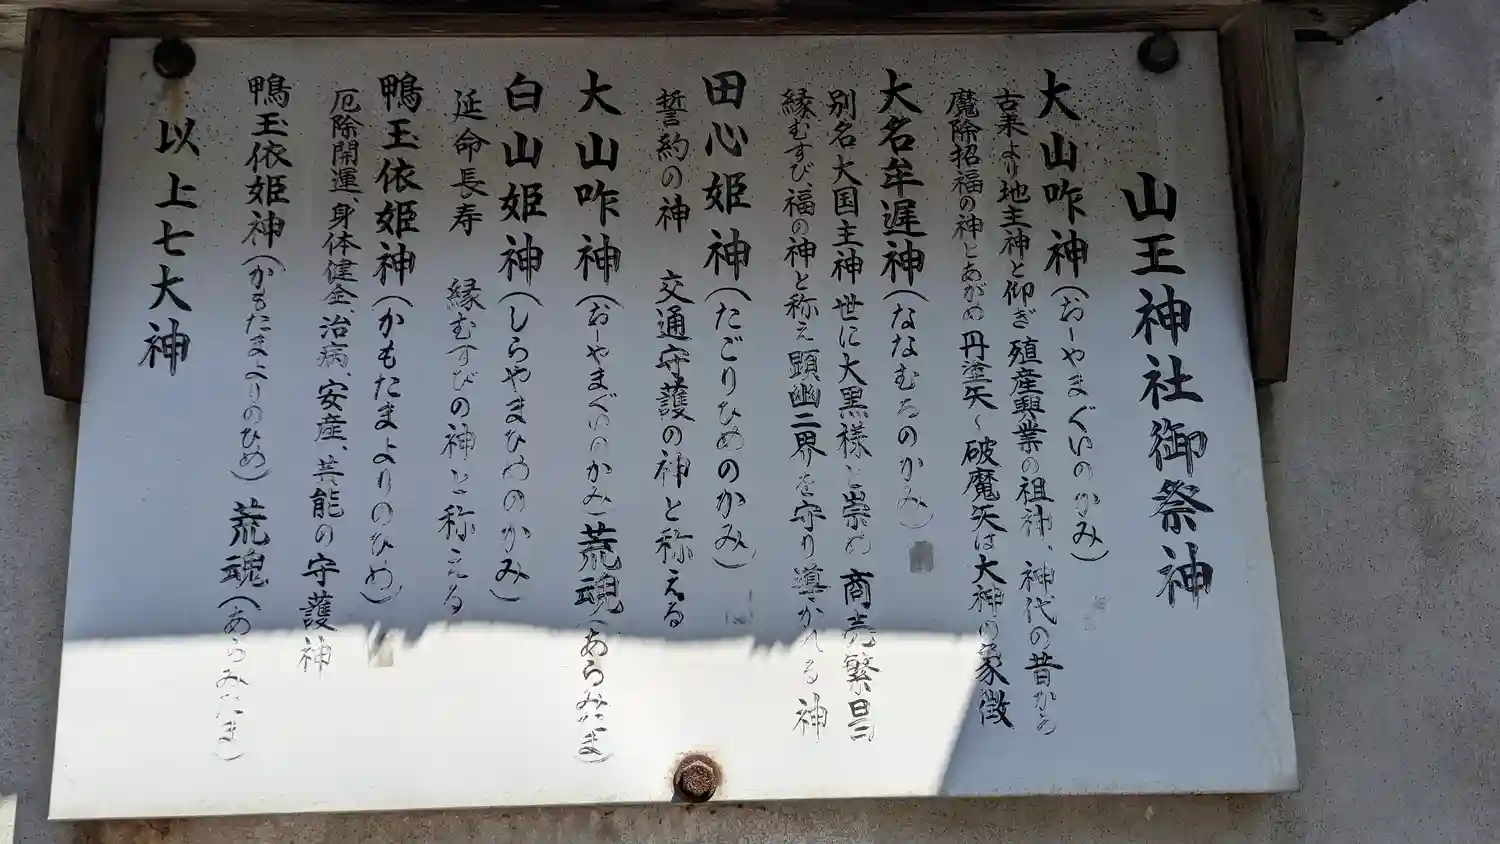 山王神社御祭神
大山咋神(おーやまぐいのかみ)
古来より地主神と仰ぎ殖産興業の祖神、神代の昔から
魔除招福の神とあがめ丹塗矢〜破魔矢は大神の象徴
大名牟遅神(ななむちのかみ)
別名大国主神世に大黒様と崇め商売繁昌
縁むすび福の神と称え顕幽二界を守り導かれる神
田心姫神(たごりひめのかみ)
誓約の神 交通守護の神と称える
大山咋神(おーやまぐいのかみ)荒魂(あらみたま)
白山姫神(しらやまひめのかみ)
延命長寿 縁むすびの神と称える
鴨玉依姫神(かもたまよりのひめ)
厄除開運、身体健全、治病、安産、芸能の守護神
鴨玉依姫神(かもたまよりのひめ)荒魂(あらみたま)
以上七大神